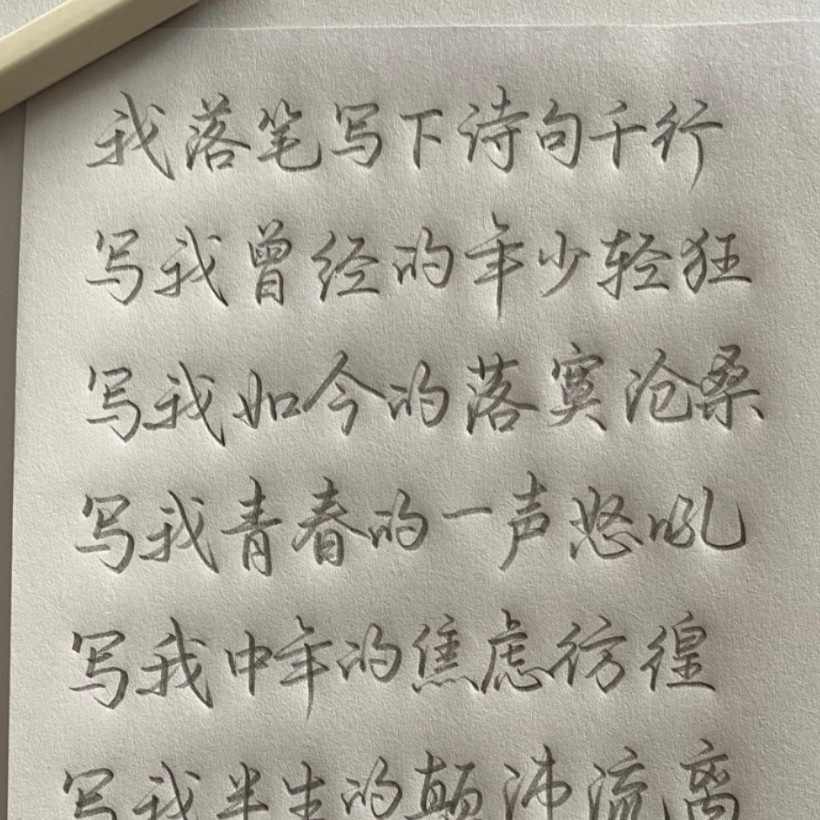 我落笔写下诗句千行
写我曾经的年少轻狂
写我如今的落寞沧桑
写我青春的一声怒吼
写我中年的焦虑彷徨
写我半生的颠沛流离